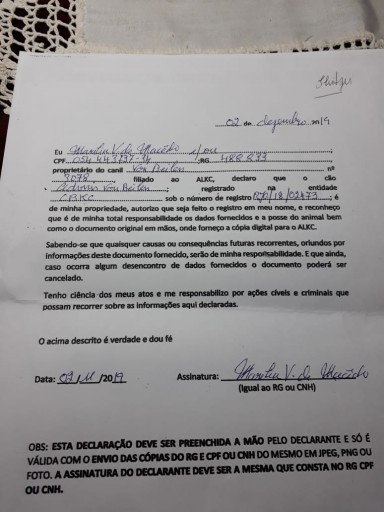 02 de dezembro 2019
Eu Marilu V. de Macêdo e/ou
CPF 054443737-34 RG 488.833
proprietário do canil Von Beilen nº
3078, filiado ao ALKC, declaro que o cão
Von Beilen registrado na entidade
CBKC sob o número de registro /18/02473; é
de minha propriedade, autorizo que seja feito o registro em meu nome, e reconheço
que é de minha total responsabilidade os dados fornecidos e a posse do animal bem
como o documento original em mãos, onde forneço a cópia digital para o ALKC.
Sabendo-se que quaisquer causas ou consequências futuras recorrentes, oriundos por
informações deste documento fornecido, serão de minha responsabilidade. E que ainda,
caso ocorra algum desencontro de dados fornecidos o documento poderá ser
cancelado.
Tenho ciência dos meus atos e me responsabilizo por ações cíveis e criminais que
possam recorrer sobre as informações aqui declaradas.
O acima descrito é verdade e dou fé
Data: 02/11/2019 Assinatura: Marilu V. de Macêdo
(Igual ao RG ou CNH)
OBS: ESTA DECLARAÇÃO DEVE SER PREENCHIDA A MÃO PELO DECLARANTE E SÓ É
VÁLIDA COM O ENVIO DAS CÓPIAS DO RG E CPF OU CNH DO MESMO EM JPEG, PNG OU
FOTO. A ASSINATURA DO DECLARANTE DEVE SER A MESMA QUE CONSTA NO RG CPF
OU CNH.